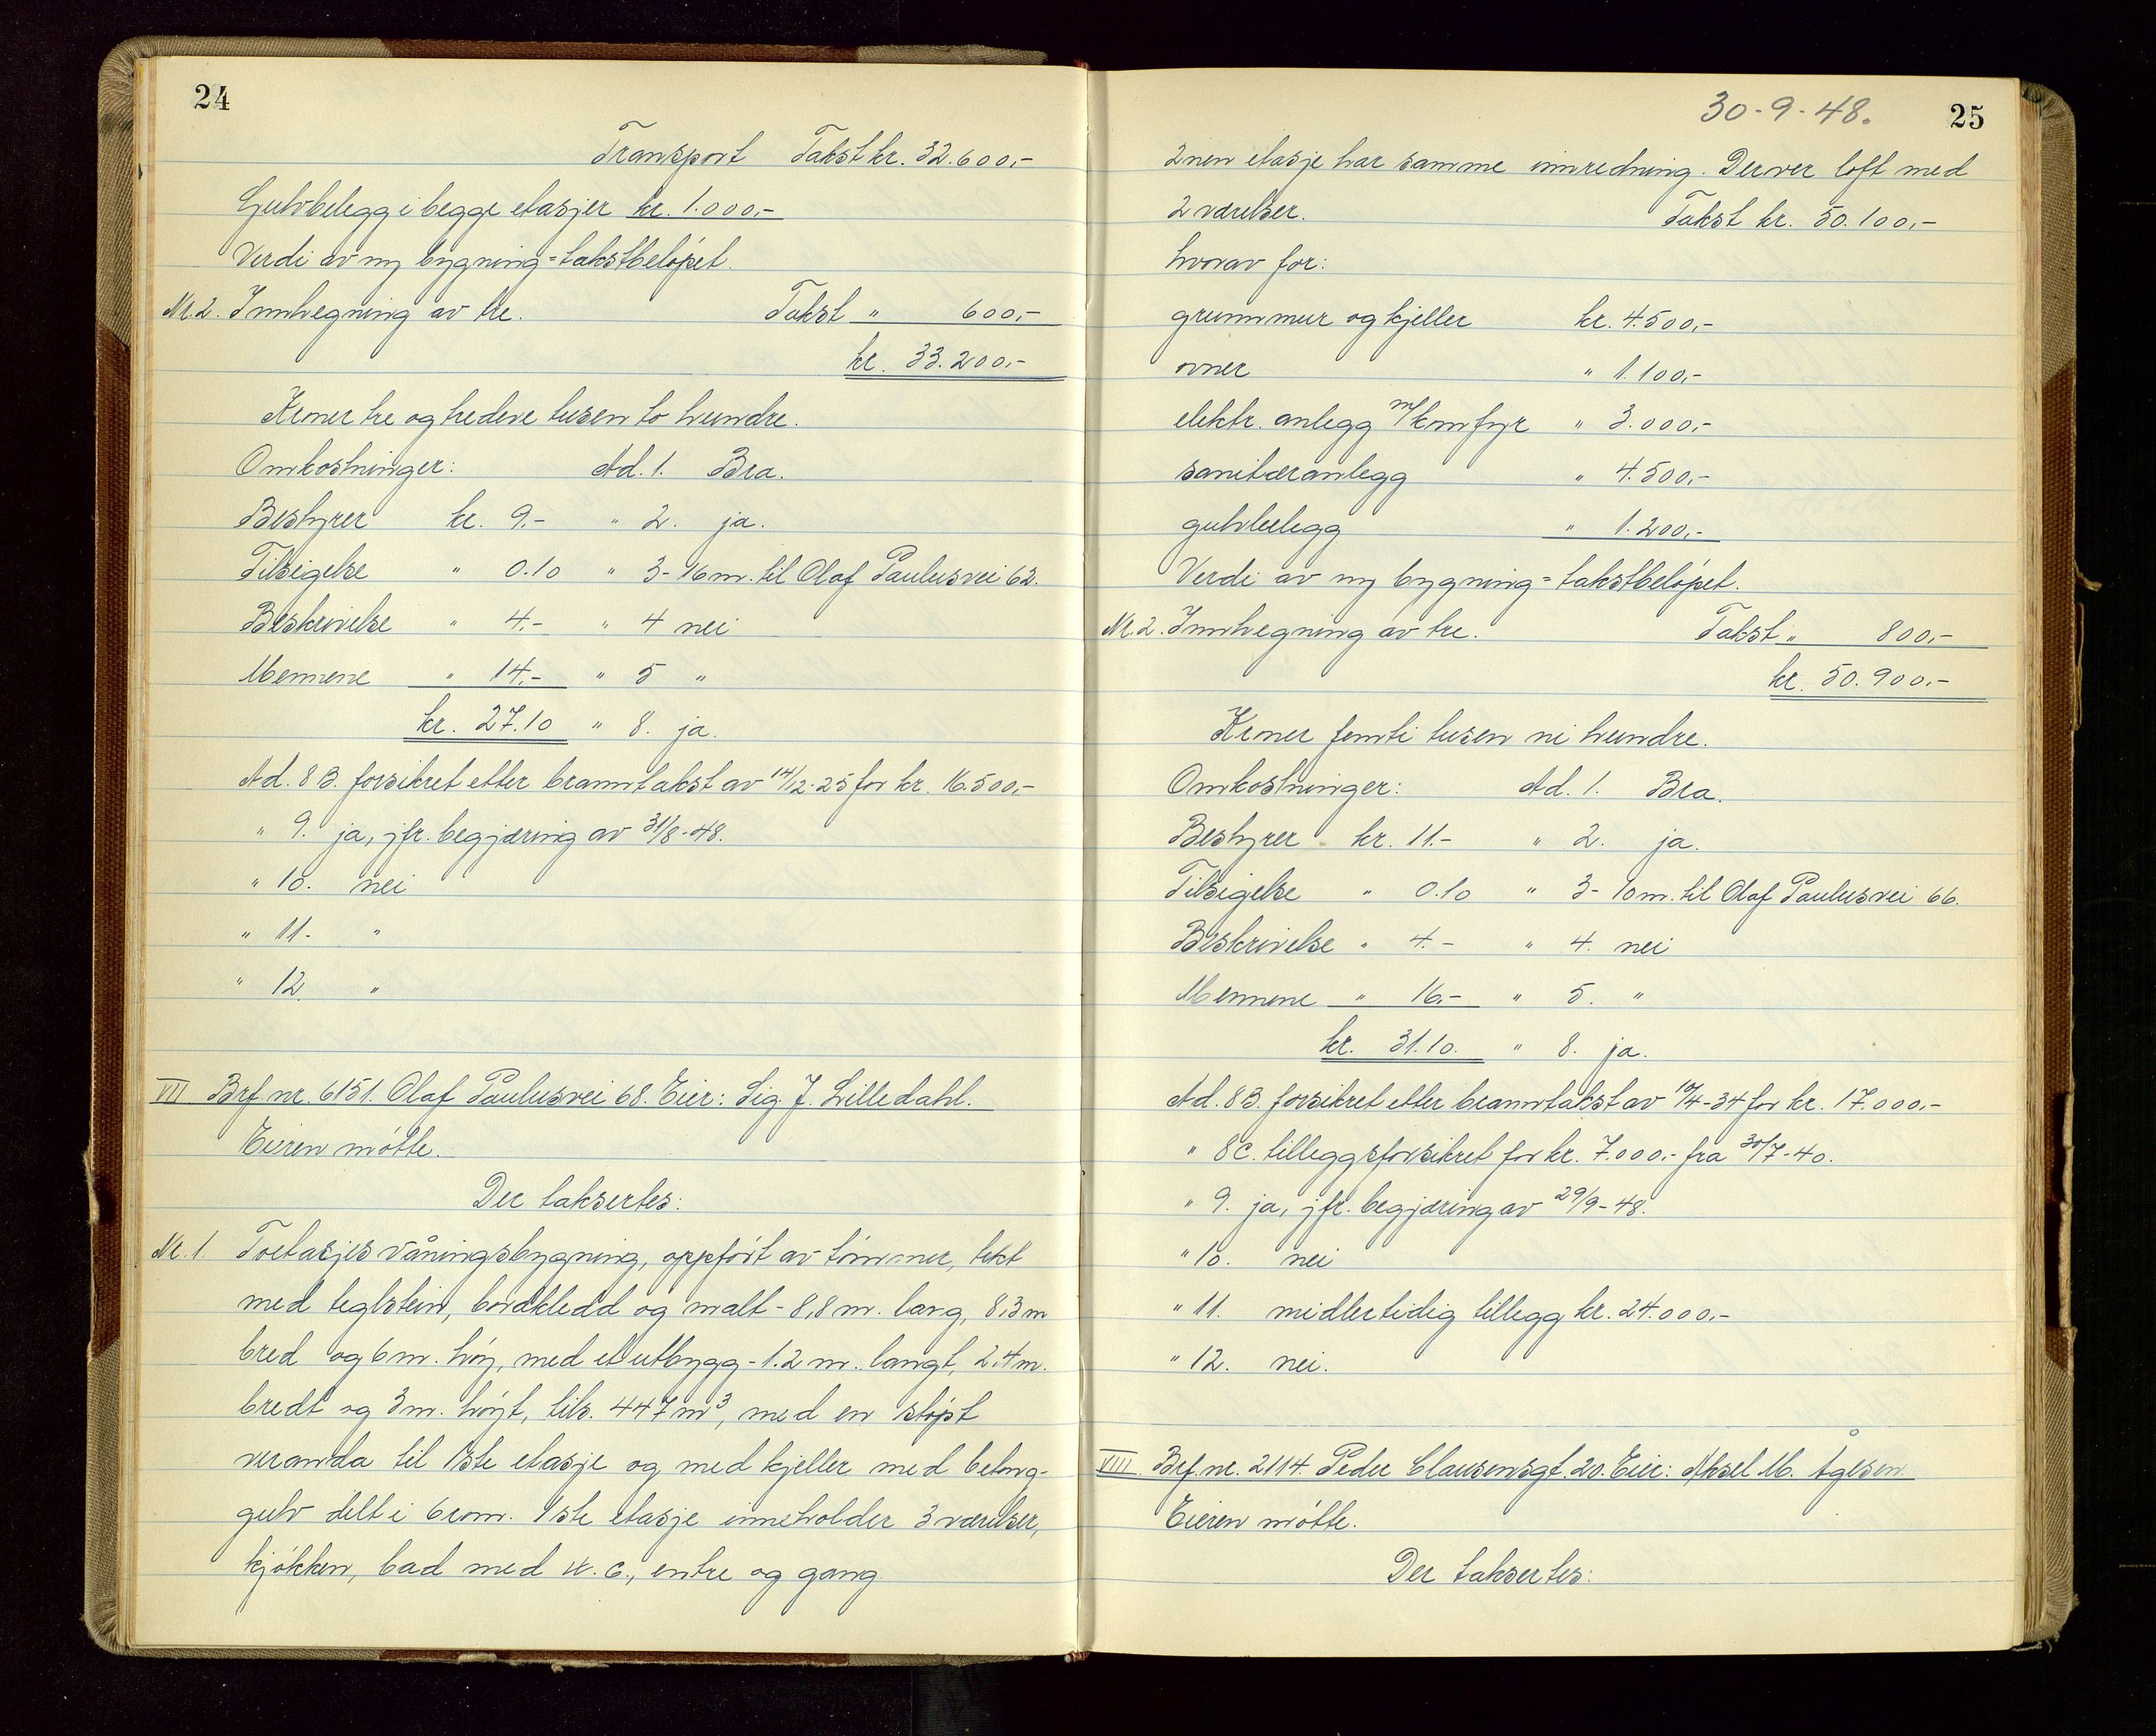 24
Transport Takst kr. 32.600,-
Gulvbelegg i begge etasjer kr. 1.000,-
Verdi av ny bygning = takstbeløpet.
Nr. 2. Innhegning av tre. Takst " 600,-
kr. 33.200,-
Kroner tre og tredeve tusen to hundre.
Omkostninger: Ad. 1. Bra.
Bestyrer kr. 9.- " 2. ja.
Tilsigelse " 0.10 " 3- 16 m. til Olaf Paulusvei 62.
Beskrivelse " 4.- " 4 nei
Mennene " 14.- " 5 "
kr. 27.10 " 8. ja.
Ad. 8 B. forsikret etter branntakst av 14/12-25 for kr. 16.500,-
" 9. ja, jfr. begjæring av 31/8-48.
" 10. nei
" 11- "
" 12. "
VII Brf. nr. 6151. Olaf Paulusvei 68. Eier: Sig. J. Lilledahl.
Eieren møtte.
Der taksertes:
Nr. 1. Toetasjes våningsbygning, oppført av tømmer, tekt
med teglstein, bordkledd og malt - 8,8 m. lang, 8,3 m
bred og 6 m. høy, med et utbygg - 1.2 m. langt, 2.4 m.
bredt og 3 m. høyt, tils. 447 m³, med en støpt
veranda til 1ste etasje og med kjeller med betong-
gulv delt i 6 rom. 1ste etasje inneholder 3 værelser,
kjøkken, bad med w.c., entre og gang.
30-9-48.
25
2nen etasje har samme innredning. Derover loft med
2 værelser. Takst kr. 50.100,-
hvorav for:
grunnmur og kjeller kr. 4.500,-
ovner " 1.100,-
elektr. anlegg m/komfyr " 3.000,-
sanitæranlegg " 4.500,-
gulvbelegg " 1.200,-
Verdi av ny bygning = takstbeløpet.
Nr. 2. Innhegning av tre. Takst " 800,-
kr. 50.900,-
Kroner femti tusen ni hundre.
Omkostninger: Ad. 1. Bra.
Bestyrer kr. 11.- " 2. ja.
Tilsigelse " 0.10 " 3- 10 m. til Olaf Paulusvei 66.
Beskrivelse " 4.- " 4. nei
Mennene " 16.- " 5. "
kr. 31.10. " 8. ja.
Ad. 8 B. forsikret etter branntakst av 10/4-34 for kr. 17.000,-
" 8 C. tilleggsforsikret for kr. 7.000.- fra 30/7-40.
" 9. ja, jfr. begjæring av 29/9-48.
" 10. nei
" 11. midlertidig tillegg kr. 24.000,-
" 12. nei.
VIII. Brf. nr. 2114. Peder Clausensgt. 20. Eier: Aksel M. Ågesen.
Eieren møtte.
Der taksertes: